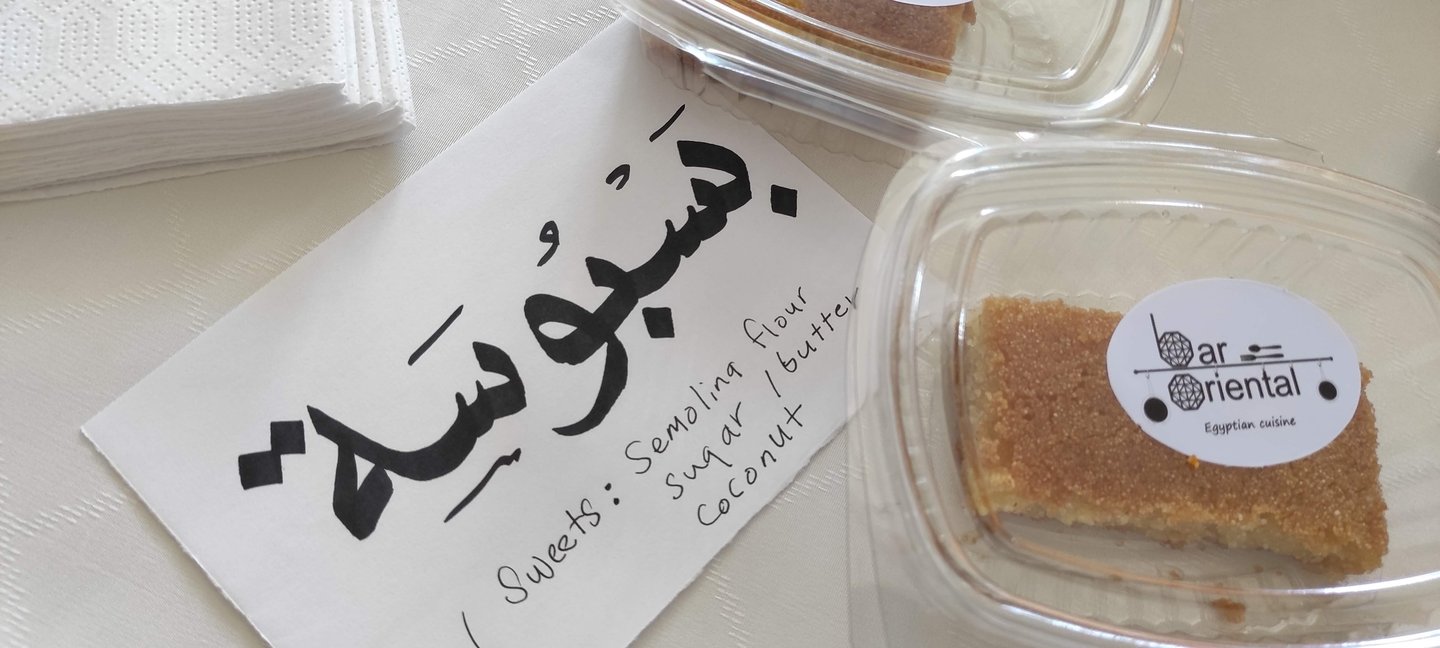 بَسْبُوسَة
Sweets: Semolina flour
sugar / butter
coconut
bar
oriental
Egyptian cuisine